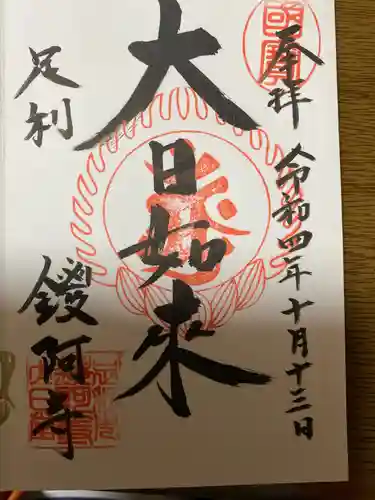 奉拝
令和四年十月十三日
大日如来
足利
鑁阿寺